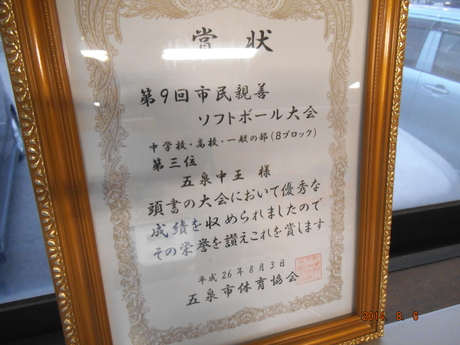 賞状
第9回市民親善
ソフトボール大会
中学校・高校・一般の部(Bブロック)
第三位
五泉中王 様
頭書の大会において優秀な
成績を収められましたので
その栄誉を讃えこれを賞します
平成26年8月3日
五泉市体育協会